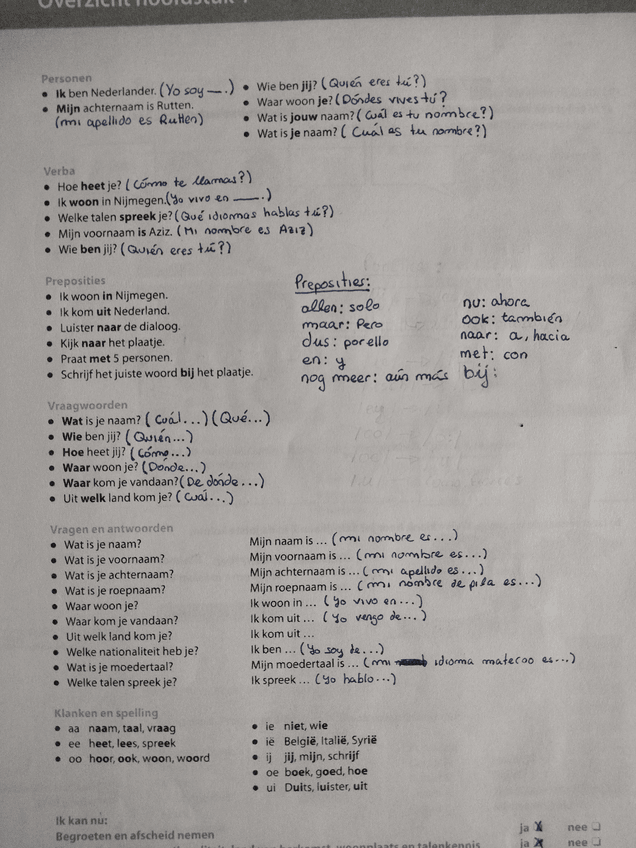 Overzicht hoofdstuk 1
Personen
• Ik ben Nederlander. (Yo soy __.)
• Mijn achternaam is Rutten.
(mi apellido es Rutten)
• Wie ben jij? (Quién eres tú?)
• Waar woon je? (Dóndes vives tú?
• Wat is jouw naam? (Cuál es tu nombre?)
• Wat is je naam? (Cuál es tu nombre?)
Verba
• Hoe heet je? (Cómo te llamas?)
• Ik woon in Nijmegen. (Yo vivo en ___.)
• Welke talen spreek je? (Qué idiomas hablas tú?)
• Mijn voornaam is Aziz. (Mi nombre es Aziz)
• Wie ben jij? (Quién eres tú?)
Preposities
• Ik woon in Nijmegen.
• Ik kom uit Nederland.
• Luister naar de dialoog.
• Kijk naar het plaatje.
• Praat met 5 personen.
• Schrijf het juiste woord bij het plaatje.
Preposities:
allen: solo
maar: Pero
dus: por ello
en: y
nog meer: aún más
nu: ahora
ook: también
naar: a, hacia
met: con
bij:
Vraagwoorden
• Wat is je naam? (Cuál...) (Qué...)
• Wie ben jij? (Quién...)
• Hoe heet jij? (Cómo...)
• Waar woon je? (Dónde...)
• Waar kom je vandaan? (De dónde...)
• Uit welk land kom je? (Cuál...)
Vragen en antwoorden
• Wat is je naam? Mijn naam is ... (mi nombre es...)
• Wat is je voornaam? Mijn voornaam is ... (mi nombre es...)
• Wat is je achternaam? Mijn achternaam is ... (mi apellido es...)
• Wat is je roepnaam? Mijn roepnaam is ... (mi nombre de pila es...)
• Waar woon je? Ik woon in ... (Yo vivo en...)
• Waar kom je vandaan? Ik kom uit ... (Yo vengo de...)
• Uit welk land kom je? Ik kom uit ...
• Welke nationaliteit heb je? Ik ben ... (Yo soy de...)
• Wat is je moedertaal? Mijn moedertaal is ... (mi idioma materno es...)
• Welke talen spreek je? Ik spreek ... (Yo hablo...)
Klanken en spelling
• aa naam, taal, vraag
• ee heet, lees, spreek
• oo hoor, ook, woon, woord
• ie niet, wie
• ië België, Italië, Syrië
• ij jij, mijn, schrijf
• oe boek, goed, hoe
• ui Duits, luister, uit
Ik kan nu:
Begroeten en afscheid nemen ja nee
woonplaats en talenkennis ja nee